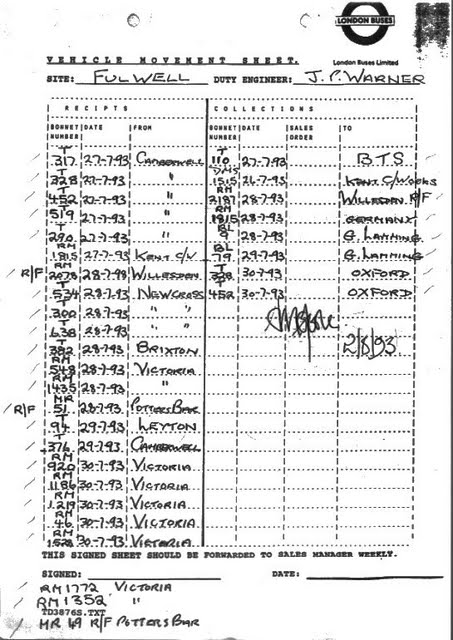 LONDON BUSES
VEHICLE MOVEMENT SHEET.
London Buses Limited
SITE: FULWELL DUTY ENGINEER: J. P. WARNER
RECEIPTS COLLECTIONS
BONNET NUMBER DATE FROM BONNET NUMBER DATE SALES ORDER TO
T 317 27-7-93 CAMBERWELL T 110 27-7-93 B.T.S
T 328 27-7-93 " DMS 1515 26-7-93 KENT C/WORKS
T 452 27-7-93 " RM 2187 28-7-93 WILLESDEN R/F
T 519 27-7-93 " RM 1815 28-7-93 GERMANY
T 290 27-7-93 " BL 9 28-7-93 G. LAMMING
RM 1815 27-7-93 KENT C/W BL 79 29-7-93 G. LAMMING
R/F RM 2078 28-7-93 WILLESDEN T 328 30-7-93 OXFORD
T 534 28-7-93 NEWCROSS T 452 30-7-93 OXFORD
T 300 28-7-93 " "
T 638 28-7-93 " " 2/8/93
T 382 28-7-93 BRIXTON
RM 548 28-7-93 VICTORIA
RM 1435 28-7-93 "
R/F MR 51 28-7-93 POTTERS BAR
T 94 29-7-93 LEYTON
T 376 29-7-93 CAMBERWELL
RM 920 30-7-93 VICTORIA
RM 1186 30-7-93 VICTORIA
RM 1219 30-7-93 VICTORIA
RM 46 30-7-93 VICTORIA
RM 1528 30-7-93 VICTORIA
THIS SIGNED SHEET SHOULD BE FORWARDED TO SALES MANAGER WEEKLY.
SIGNED: DATE:
RM 1772 VICTORIA
RM 1352 "
TD3876S.TXT
MR 49 R/F POTTERS BAR